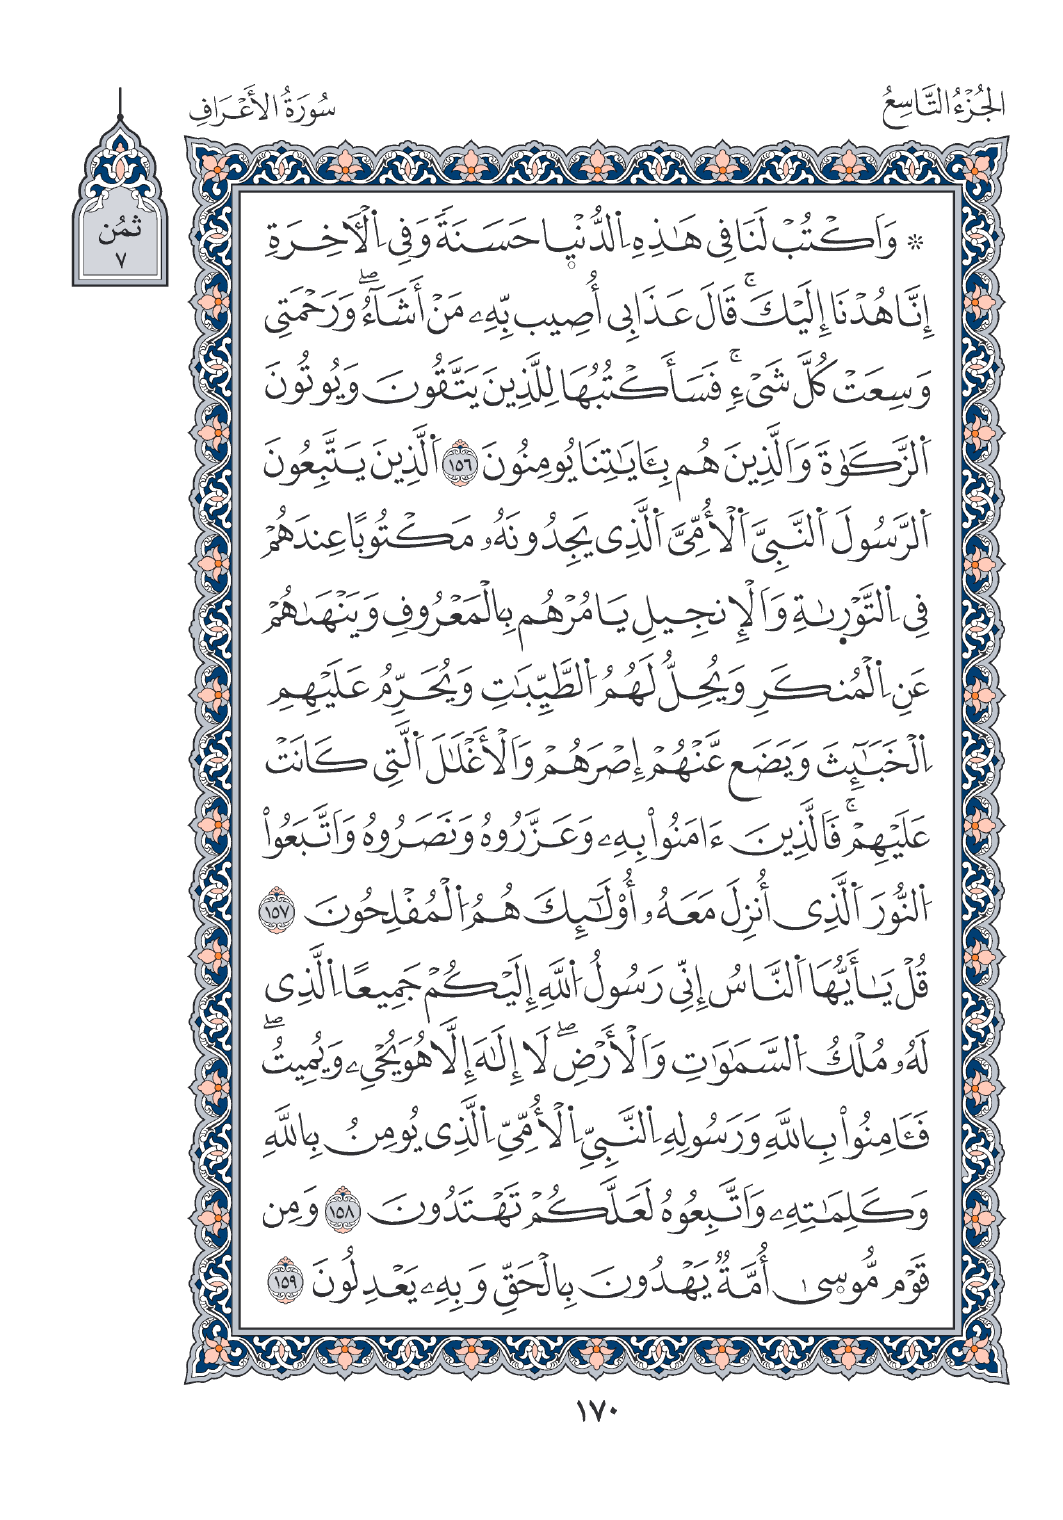 الجُزْءُ التَّاسِعُ
سُورَةُ الأَعْرَافِ
ثمُن
٧
۞ وَاَكْتُبْ لَنَا فِى هَٰذِهِ اِ۬لدُّنْي۪ا حَسَنَةً وَفِى اِ۬لْأَخِرَةِ
إِنَّا هُدْنَا إِلَيْكَۚ قَالَ عَذَابِى أُصِيب بِّهِۦ مَنْ أَشَآءُۖ وَرَحْمَتِى
وَسِعَتْ كُلَّ شَىْءٍۚ فَسَأَكْتُبُهَا لِلَّذِينَ يَتَّقُونَ وَيُوتُونَ
اَ۬لزَّكَوٰةَ وَاَلَّذِينَ هُم بِـَٔايَٰتِنَا يُومِنُونَ ١٥٦ اَ۬لَّذِينَ يَتَّبِعُونَ
اَ۬لرَّسُولَ اَ۬لنَّبِىَّ اَ۬لْأُمِّىَّ اَ۬لَّذِى يَجِدُونَهُۥ مَكْتُوبًا عِندَهُمْ
فِى اِ۬لتَّوْر۪ىٰةِ وَاَلْإِنجِيلِ يَامُرْهُم بِالْمَعْرُوفِ وَيَنْهَىٰهُمْ
عَنِ اِ۬لْمُنكَرِ وَيُحِلُّ لَهُمُ اُ۬لطَّيِّبَٰتِ وَيُحَرِّمُ عَلَيْهِمِ
اِ۬لْخَبَٰٓئِثَ وَيَضَع عَّنْهُمْ إِصْرَهُمْ وَاَلْأَغْلَٰلَ اَ۬لَّتِى كَانَتْ
عَلَيْهِمْۚ فَالَّذِينَ ءَامَنُواْ بِهِۦ وَعَزَّرُوهُ وَنَصَرُوهُ وَاَتَّبَعُواْ
اُ۬لنُّورَ اَ۬لَّذِى أُنزِلَ مَعَهُۥ أُوْلَٰٓئِكَ هُمُ اُ۬لْمُفْلِحُونَ ١٥٧
قُلْ يَٰأَيُّهَا اَ۬لنَّاسُ إِنِّى رَسُولُ اُ۬للَّهِ إِلَيْكُمْ جَمِيعًا اِ۬لَّذِى
لَهُۥ مُلْكُ اُ۬لسَّمَٰوَٰتِ وَاَلْأَرْضِۖ لَا إِلَٰهَ إِلَّا هُو يُحْىِۦ وَيُمِيتُۖ
فَـَٔامِنُواْ بِاللَّهِ وَرَسُولِهِ اِ۬لنَّبِىِّ اِ۬لْأُمِّىِّ اِ۬لَّذِى يُومِنُ بِاللَّهِ
وَكَلِمَٰتِهِۦ وَاَتَّبِعُوهُ لَعَلَّكُمْ تَهْتَدُونَ ١٥٨ وَمِن
قَوْم مُّوس۪ىٰ أُمَّةٌ يَهْدُونَ بِالْحَقِّ وَبِهِۦ يَعْدِلُونَ ١٥٩
١٧٠